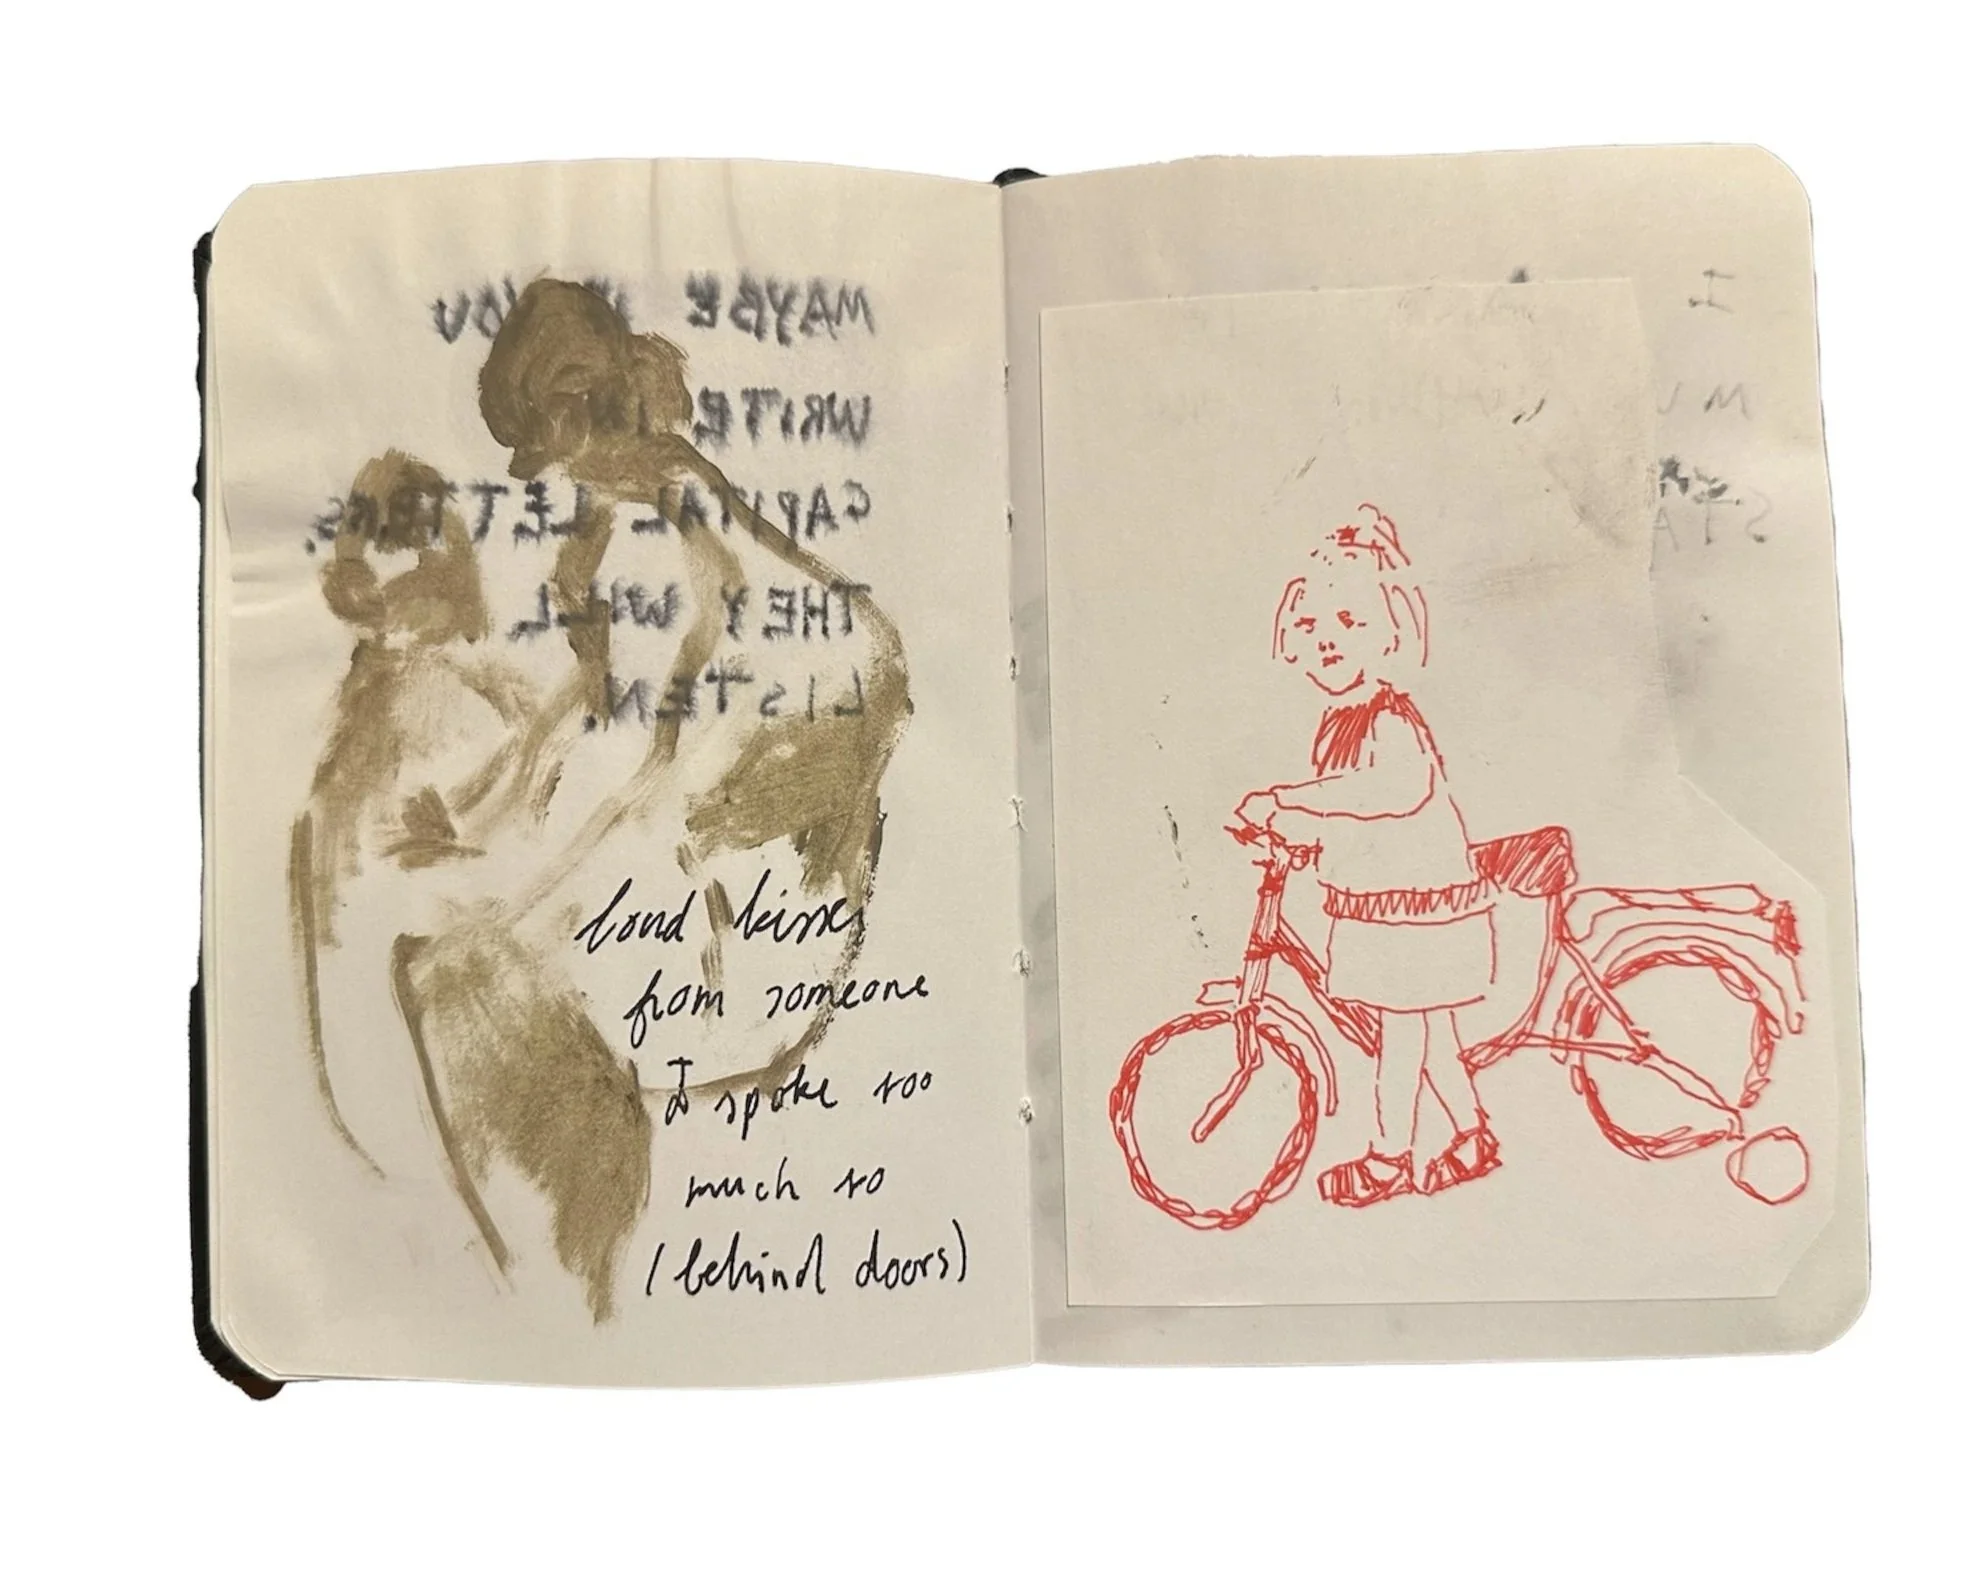 MAYBE IF YOU
WRITE IN
CAPITAL LETTERS.
THEY WILL
LISTEN.
loud kisses
from someone
I spoke too
much to
(behind doors)
I